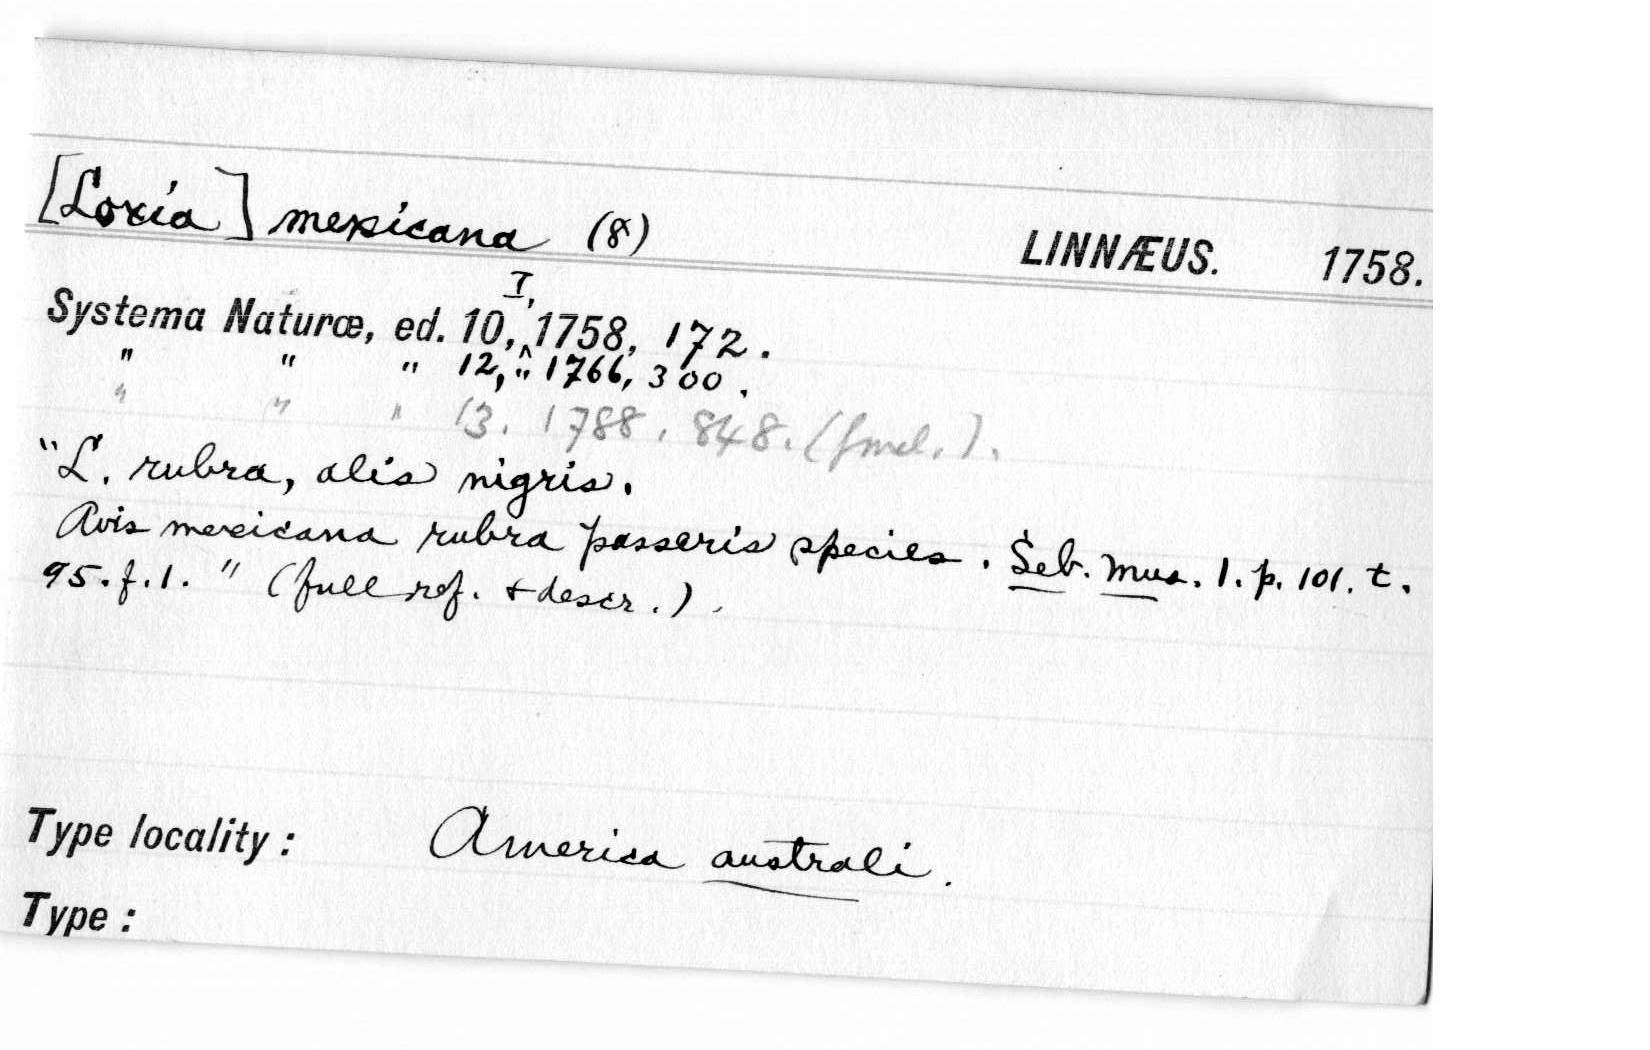 [Loxia] mexicana (8) LINNÆUS. 1758.
Systema Naturæ, ed. 10, I, 1758, 172.
" " " 12, " 1766, 300.
" " " 13. 1788. 848. (Gmel.).
"L. rubra, alis nigris.
Avis mexicana rubra passeris species. Seb. Mus. 1. p. 101. t.
95. f. 1. " (full ref. + descr.).
Type locality: America australi.
Type: